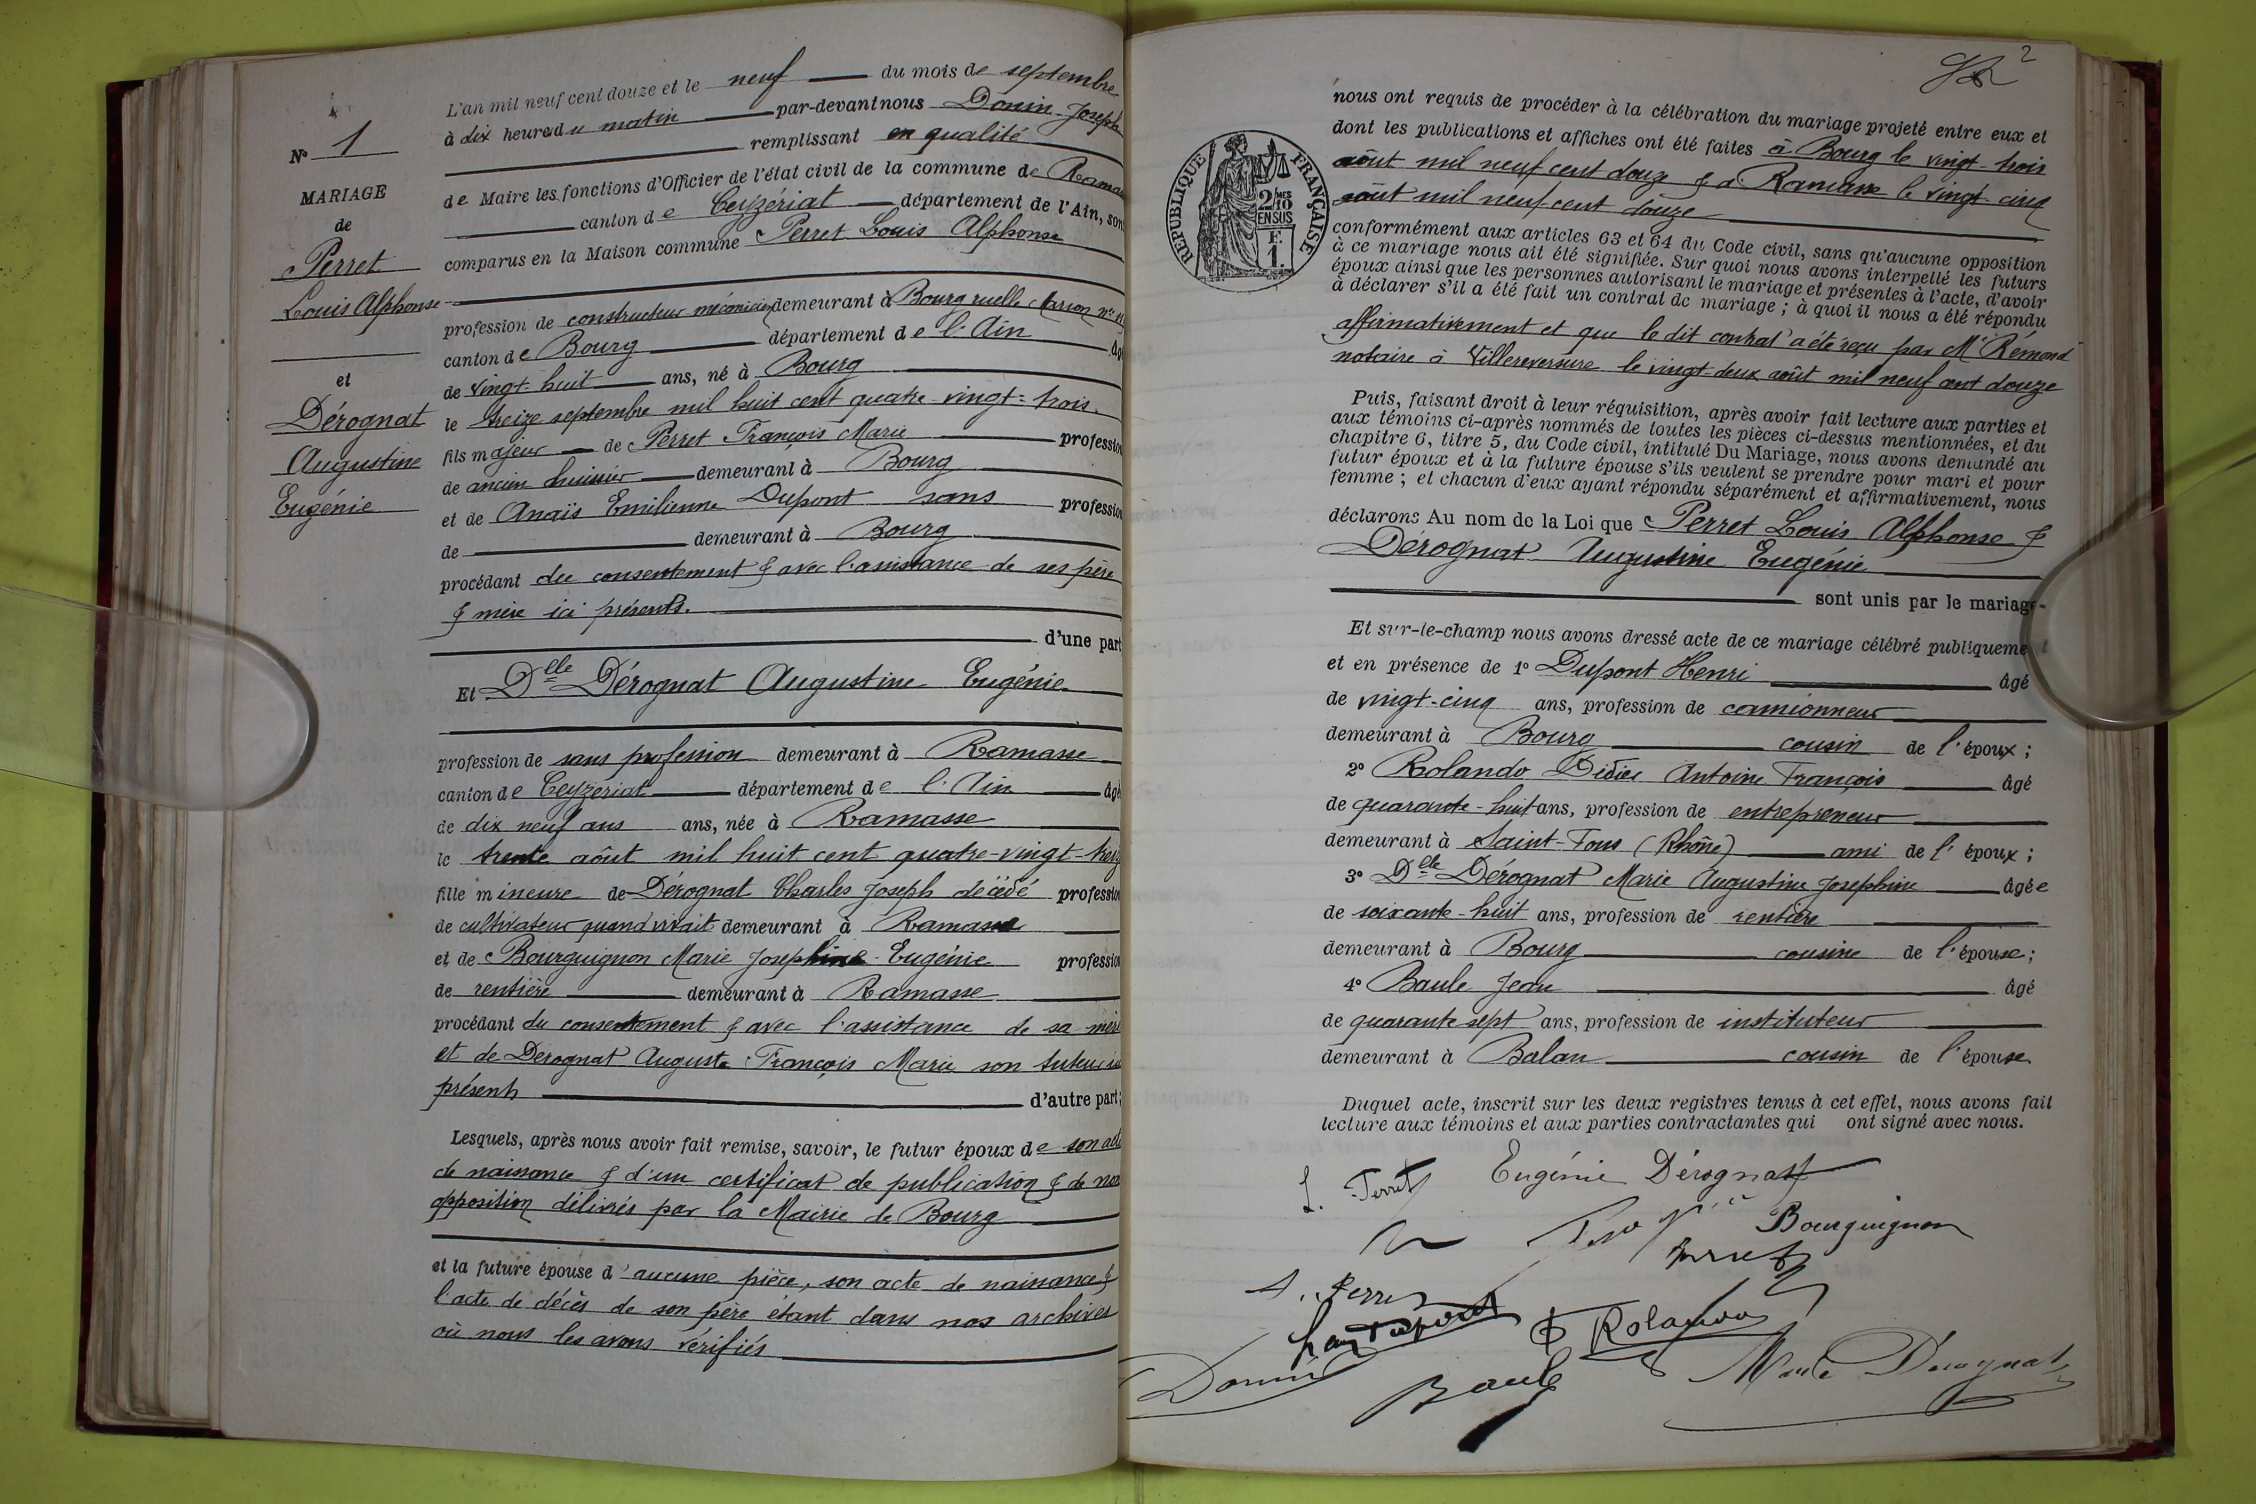 N° 1
MARIAGE
de
Perret
Louis Alphonse
et
Dérognat
Augustine
Eugénie
L'an mil neuf cent douze et le neuf du mois de septembre
à dix heures du matin par-devant nous Donin Joseph
remplissant en qualité
de Maire les fonctions d'Officier de l'état civil de la commune de Ramas
canton de Ceyzériat département de l'Ain, son
comparus en la Maison commune Perret Louis Alphonse
profession de constructeur mécanicien demeurant à Bourg ruelle Marion n°
canton de Bourg département de l'Ain âg
de vingt-huit ans, né à Bourg
le treize septembre mil huit cent quatre-vingt-trois.
fils majeur de Perret François Marie profession
de ancien huissier demeurant à Bourg
et de Anaïs Emilienne Dupont sans profession
de demeurant à Bourg
procédant du consentement & avec l'assistance de ses père
& mère ici présents.
d'une part
Et Delle Dérognat Augustine Eugénie
profession de sans profession demeurant à Ramasse
canton de Ceyzériat département de l'Ain âgé
de dix neuf ans ans, née à Ramasse
le trente août mil huit cent quatre-vingt-treiz
fille mineure de Dérognat Charles Joseph décédé profession
de cultivateur quand vivait demeurant à Ramasse
et de Bourguignon Marie Josephine Eugénie profession
de rentière demeurant à Ramasse
procédant du consentement & avec l'assistance de sa mère
et de Dérognat Auguste François Marie son tuteur ici
présents d'autre part;
Lesquels, après nous avoir fait remise, savoir, le futur époux de son acte
de naissance & d'un certificat de publication & de non
opposition délivrés par la Mairie de Bourg
et la future épouse d'aucune pièce, son acte de naissance &
l'acte de décès de son père étant dans nos archives
où nous les avons vérifiés
2
nous ont requis de procéder à la célébration du mariage projeté entre eux et
dont les publications et affiches ont été faites à Bourg le vingt-trois
août mil neuf cent douze & à Ramasse le vingt-cinq
août mil neuf cent douze
RÉPUBLIQUE FRANÇAISE
2/10 MES
EN SUS
F.
1.
conformément aux articles 63 et 64 du Code civil, sans qu'aucune opposition
à ce mariage nous ait été signifiée. Sur quoi nous avons interpellé les futurs
époux ainsi que les personnes autorisant le mariage et présentes à l'acte, d'avoir
à déclarer s'il a été fait un contrat de mariage; à quoi il nous a été répondu
affirmativement et que le dit contrat a été reçu par Me Rémond
notaire à Villereversure le vingt-deux août mil neuf cent douze
Puis, faisant droit à leur réquisition, après avoir fait lecture aux parties et
aux témoins ci-après nommés de toutes les pièces ci-dessus mentionnées, et du
chapitre 6, titre 5, du Code civil, intitulé Du Mariage, nous avons demandé au
futur époux et à la future épouse s'ils veulent se prendre pour mari et pour
femme; et chacun d'eux ayant répondu séparément et affirmativement, nous
déclarons Au nom de la Loi que Perret Louis Alphonse &
Dérognat Augustine Eugénie
sont unis par le mariage-
Et sur-le-champ nous avons dressé acte de ce mariage célébré publiquement
et en présence de 1° Dupont Henri âgé
de vingt-cinq ans, profession de camionneur
demeurant à Bourg cousin de l'époux;
2° Rolando Didier Antoine François âgé
de quarante-huit ans, profession de entrepreneur
demeurant à Saint-Fons (Rhône) ami de l'époux;
3° Delle Dérognat Marie Augustine Josephine âgée
de soixante-huit ans, profession de rentière
demeurant à Bourg cousine de l'épouse;
4° Baule Jean âgé
de quarante sept ans, profession de instituteur
demeurant à Balan cousin de l'épouse
Duquel acte, inscrit sur les deux registres tenus à cet effet, nous avons fait
lecture aux témoins et aux parties contractantes qui ont signé avec nous.
L. Perret Eugénie Dérognat
Bourguignon
Perret
A. Perret
Dupont Rolando
Donin Baule Marie Dérognat